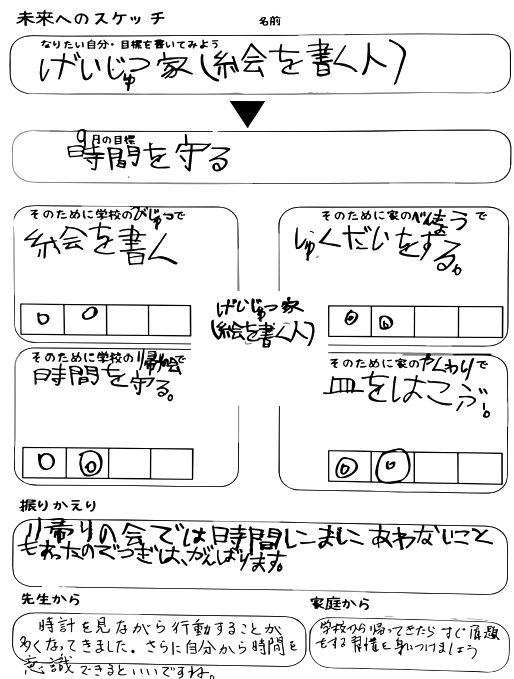 未来へのスケッチ
名前
なりたい自分・目標を書いてみよう
げいじゅつ家(絵を書く人)
9月の目標
時間を守る
そのために学校のびじゅつで
絵を書く
○ ○
そのために家のべんきょうで
しゅくだいをする。
◎ ◎
げいじゅつ家
(絵を書く人)
そのために学校の帰りの会で
時間を守る。
○ ◎
そのために家のやくわりで
皿をはこぶ。
◎ ◎
振りかえり
帰りの会では時間にまにあわないこと
もあったのでつぎは、がんばります。
先生から
時計を見ながら行動することが
多くなってきました。さらに自分から時間を
意識できるといいですね。
家庭から
学校から帰ってきたらすぐ宿題
をする習慣を身につけましょう